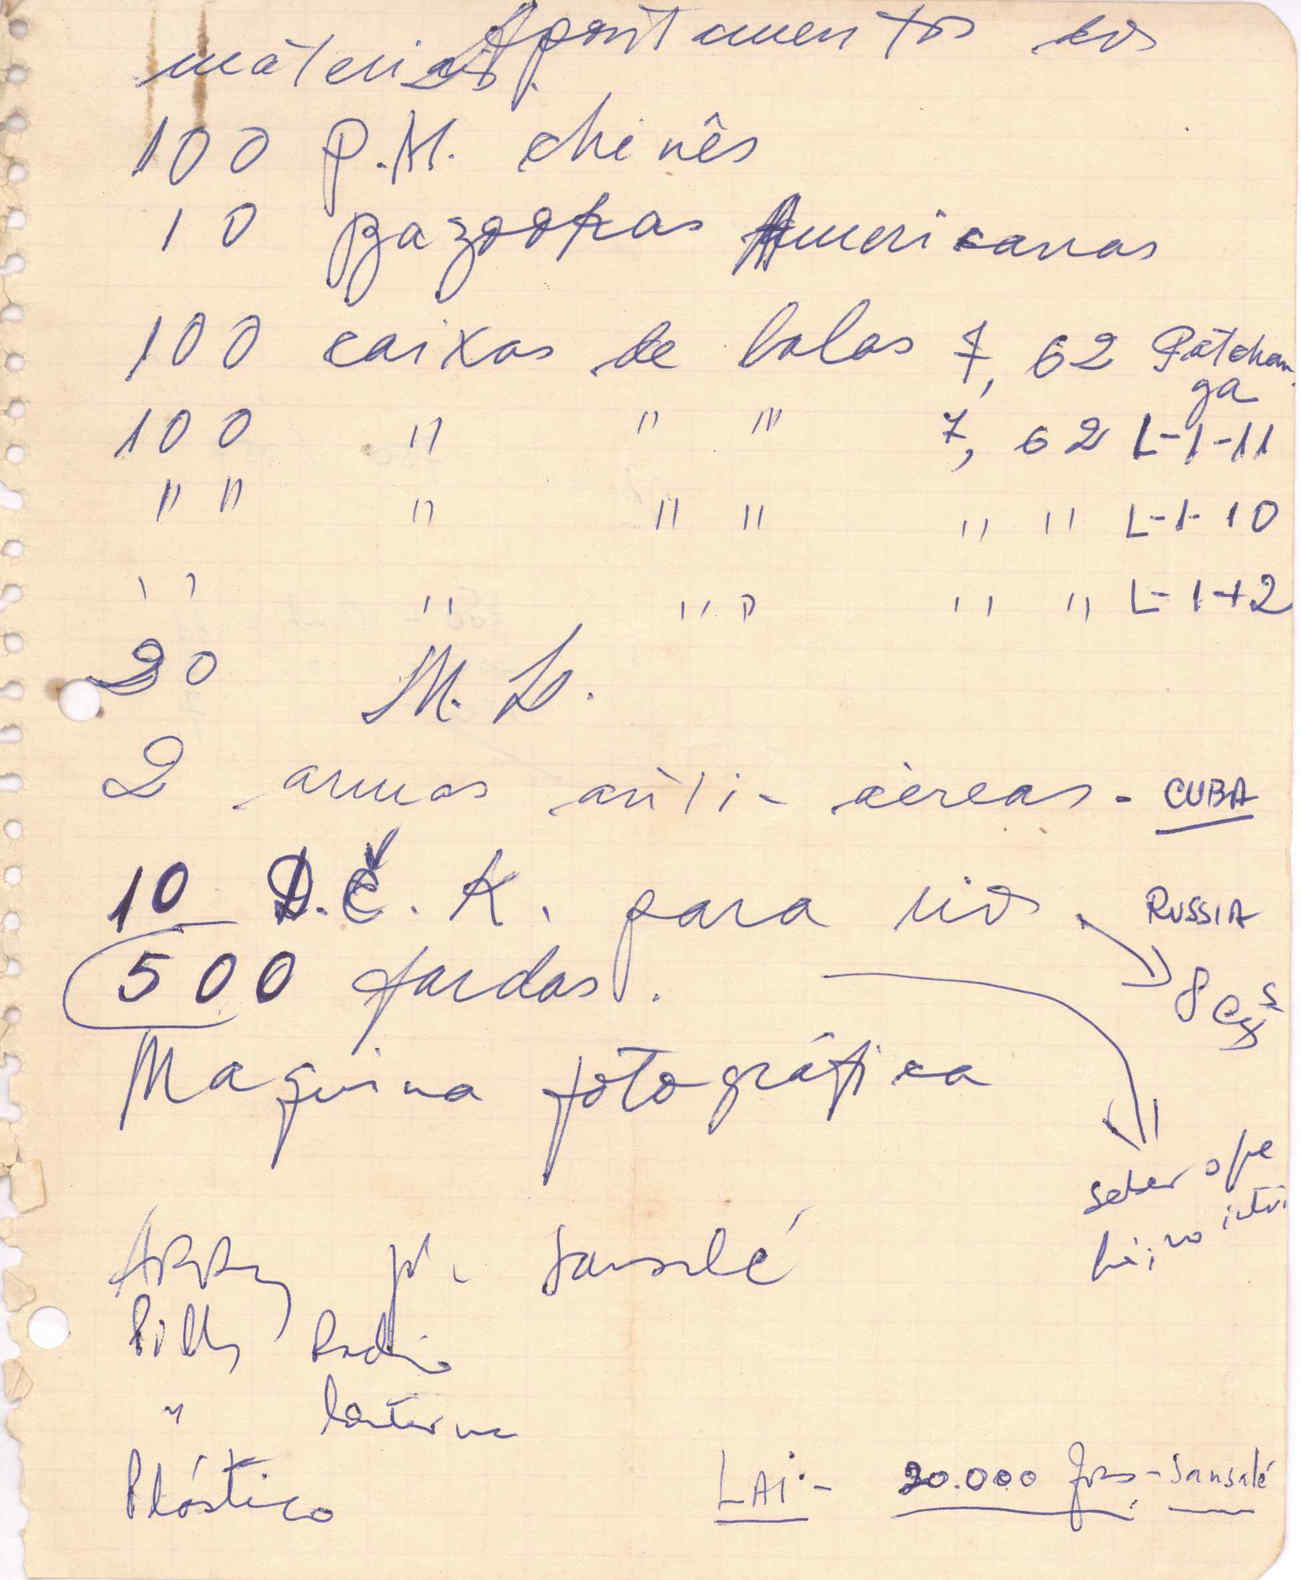 Apontamentos dos
máteriais.
100 P.M. chinês
10 Bazookas Americanas
100 caixas de balas 7,62 Patchan-
ga
100 " " " 7,62 L-1-11
" " " " " " " L-1-10
" " " " " " " L-1-12
20 M. L.
2 armas ânti-aéreas - CUBA
10 D.C.K. para rios. RUSSIA
500 fardas.
Maquina fotográfica
saber o que
há, no
p. Sansalé
Pilhas Radio
" lanterna
Plástico
LAI - 20.000 frs - Sansalé